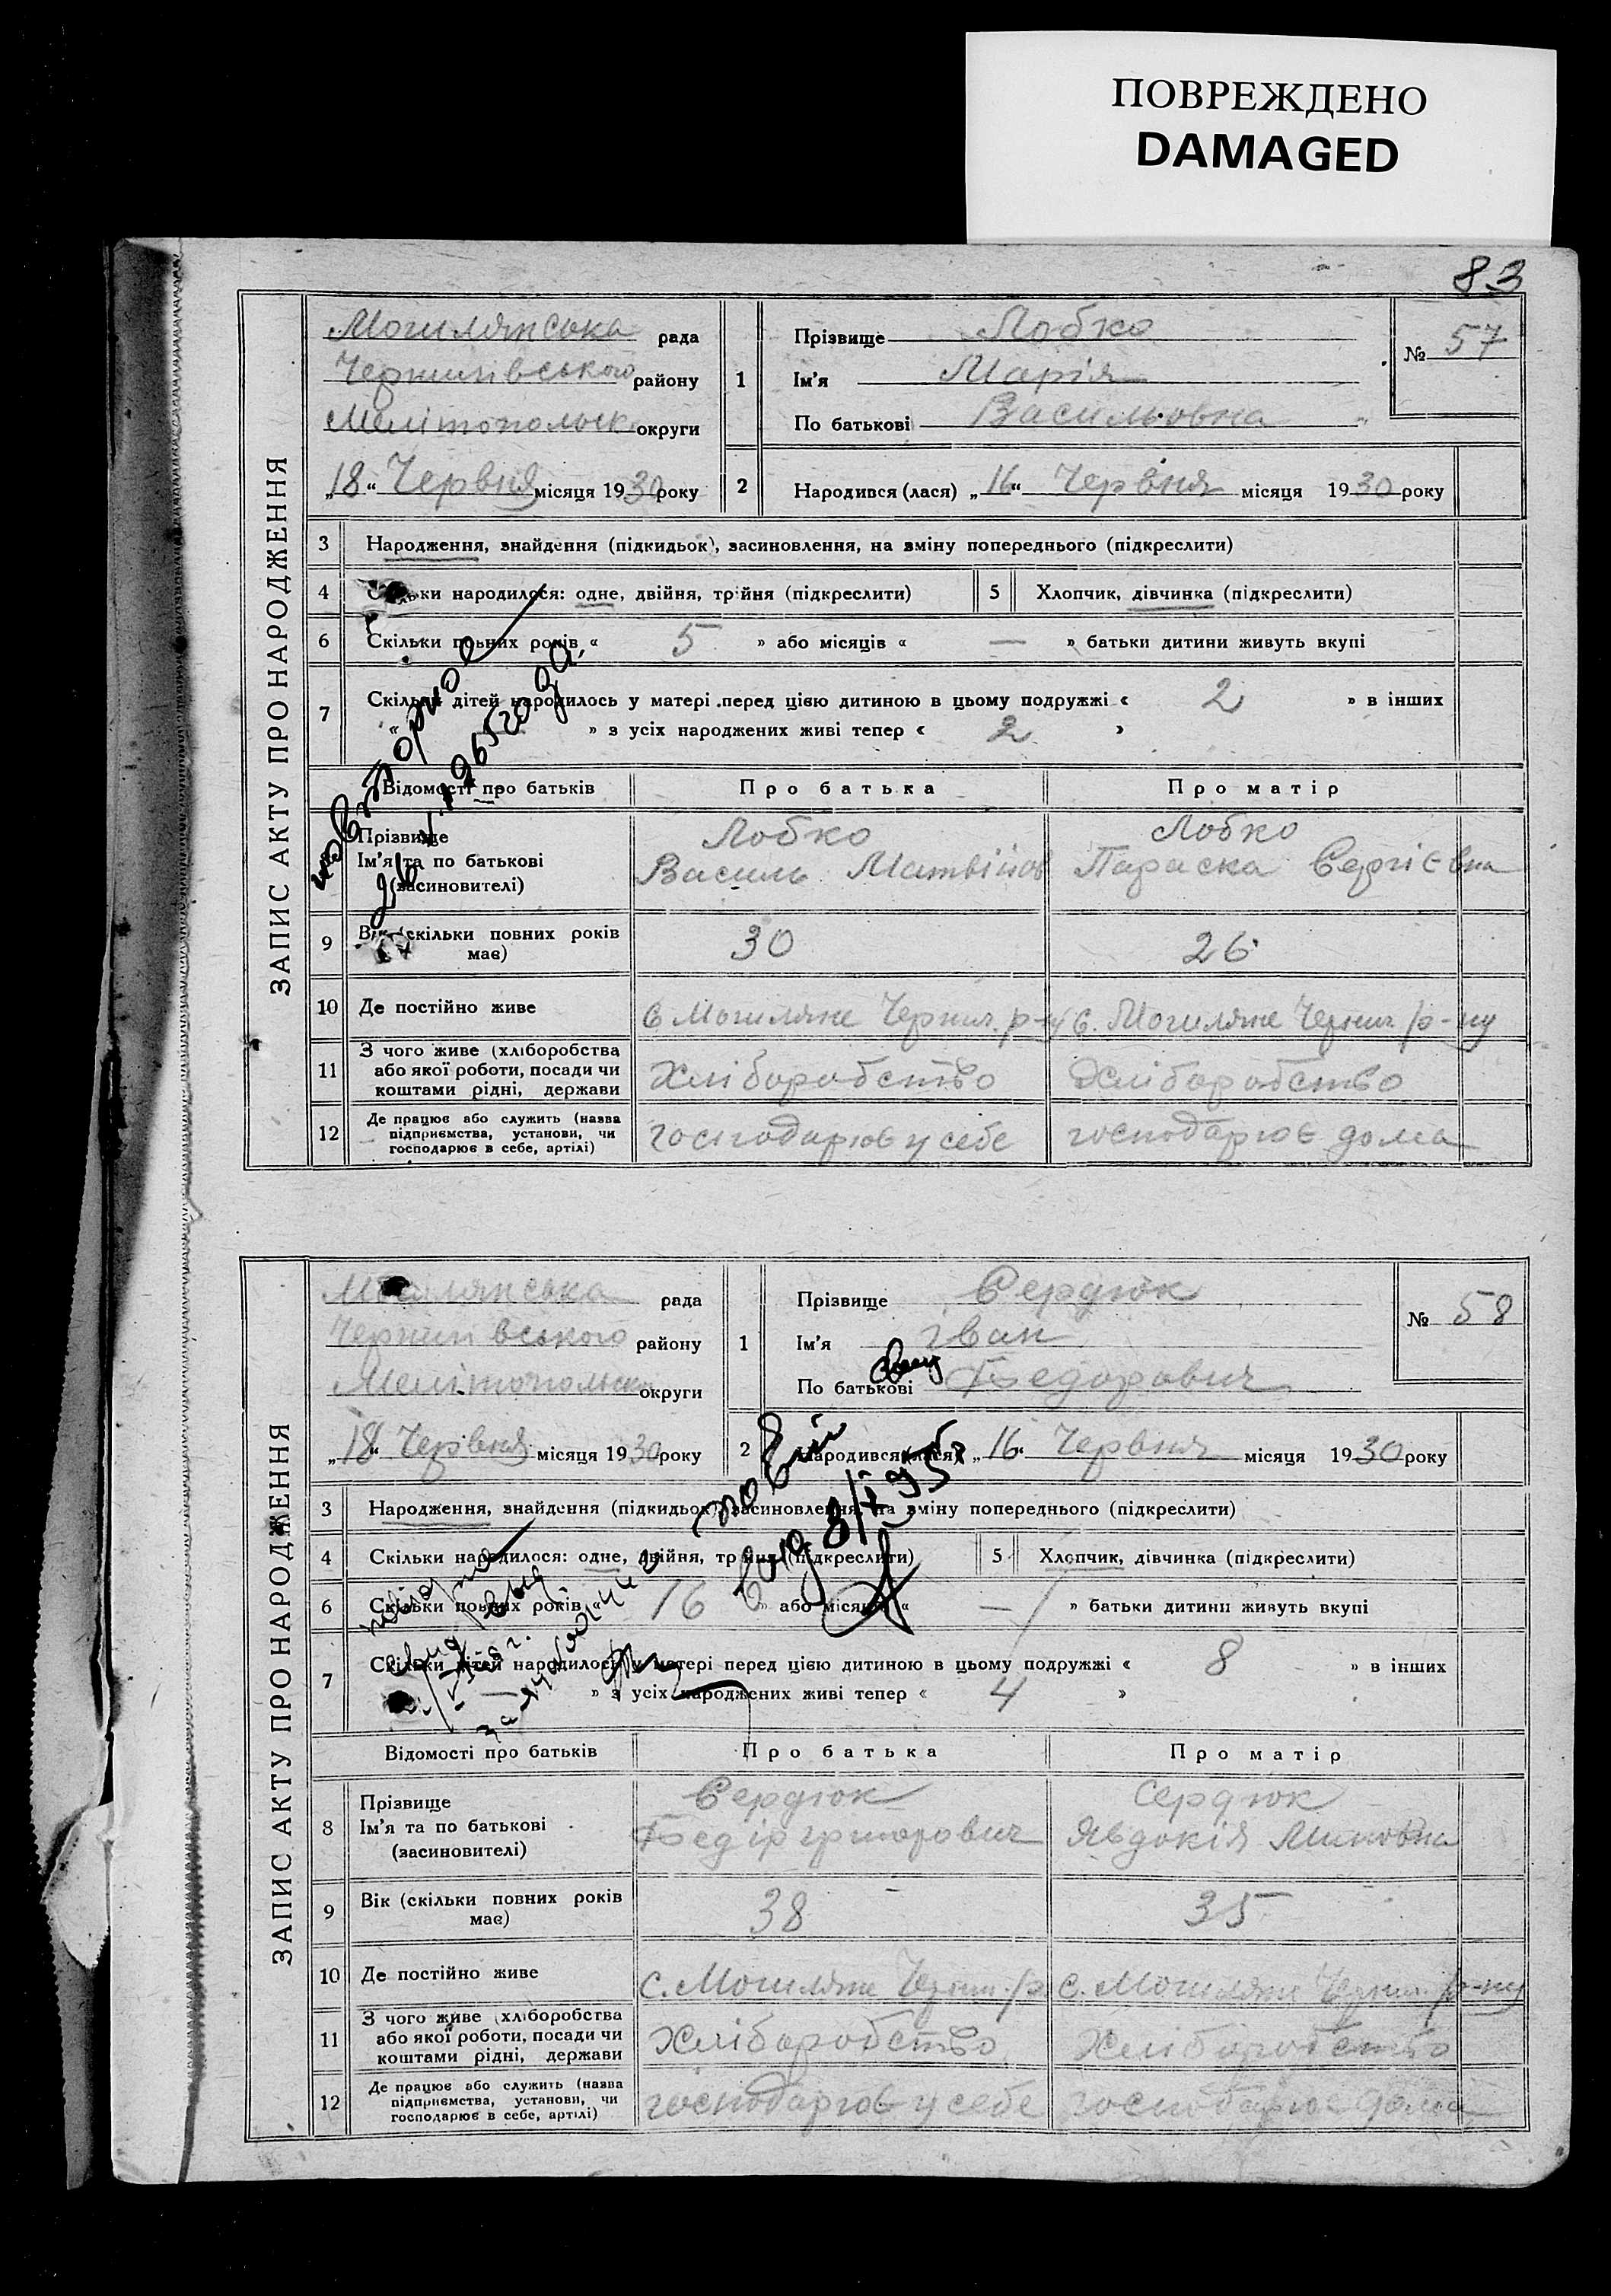 ПОВРЕЖДЕНО
DAMAGED
83
ЗАПИС АКТУ ПРО НАРОДЖЕННЯ
Могилянська рада
Чернигівського району
Мелітопольск округи
„18“ Червня місяця 1930 року
1
Прізвище Лобко
Ім'я Марія
По батькові Васильовна
№ 57
2 Народився (лася) „16“ Червня місяця 1930 року
3 Народження, знайдення (підкидьок), засиновлення, на зміну попереднього (підкреслити)
4 Скільки народилося: одне, двійня, трійня (підкреслити) 5 Хлопчик, дівчинка (підкреслити)
6 Скільки повних років „ 5 » або місяців « — » батьки дитини живуть вкупі
7 Скільки дітей народилось у матері перед цією дитиною в цьому подружжі « 2 » в інших
« » з усіх народжених живі тепер « 2 »
повторное
1965 года
Відомості про батьків Про батька Про матір
Прізвище
Ім'я та по батькові
(засиновителі)
Лобко
Василь Матвійов
Лобко
Параска Сергієвна
9 Вік (скільки повних років має) 30 26
10 Де постійно живе с Могиляне Черниг. р-ну с. Могиляне Черниг р-ну
11 З чого живе (хліборобства
або якої роботи, посади чи
коштами рідні, держави
Хліборобство Хліборобство
12 Де працює або служить (назва
підприємства, установи, чи
господарює в себе, артілі)
господарює у себе господарює дома
ЗАПИС АКТУ ПРО НАРОДЖЕННЯ
Могилянська рада
Чернигівського району
Мелітопольск округи
„18“ Червня місяця 1930 року
1
Прізвище Сердюк
Ім'я Іван
По батькові Федорович
№ 58
2 Народився (лася) „16“ Червня місяця 1930 року
3 Народження, знайдення (підкидьок), засиновлення, на зміну попереднього (підкреслити)
4 Скільки народилося: одне, двійня, трійня (підкреслити) 5 Хлопчик, дівчинка (підкреслити)
6 Скільки повних років « 16 » або місяців « — » батьки дитини живуть вкупі
7 Скільки дітей народилось у матері перед цією дитиною в цьому подружжі « 8 » в інших
« — » з усіх народжених живі тепер « 4 »
Відомості про батьків Про батька Про матір
8 Прізвище
Ім'я та по батькові
(засиновителі)
Сердюк
Федір Григорович
Сердюк
Явдокія Миновна
9 Вік (скільки повних років має) 38 35
10 Де постійно живе с. Могиляне Черниг. р с. Могиляне Черниг. р-ну
11 З чого живе (хліборобства
або якої роботи, посади чи
коштами рідні, держави
Хліборобство Хліборобство
12 Де працює або служить (назва
підприємства, установи, чи
господарює в себе, артілі)
господарює у себе господарює дома